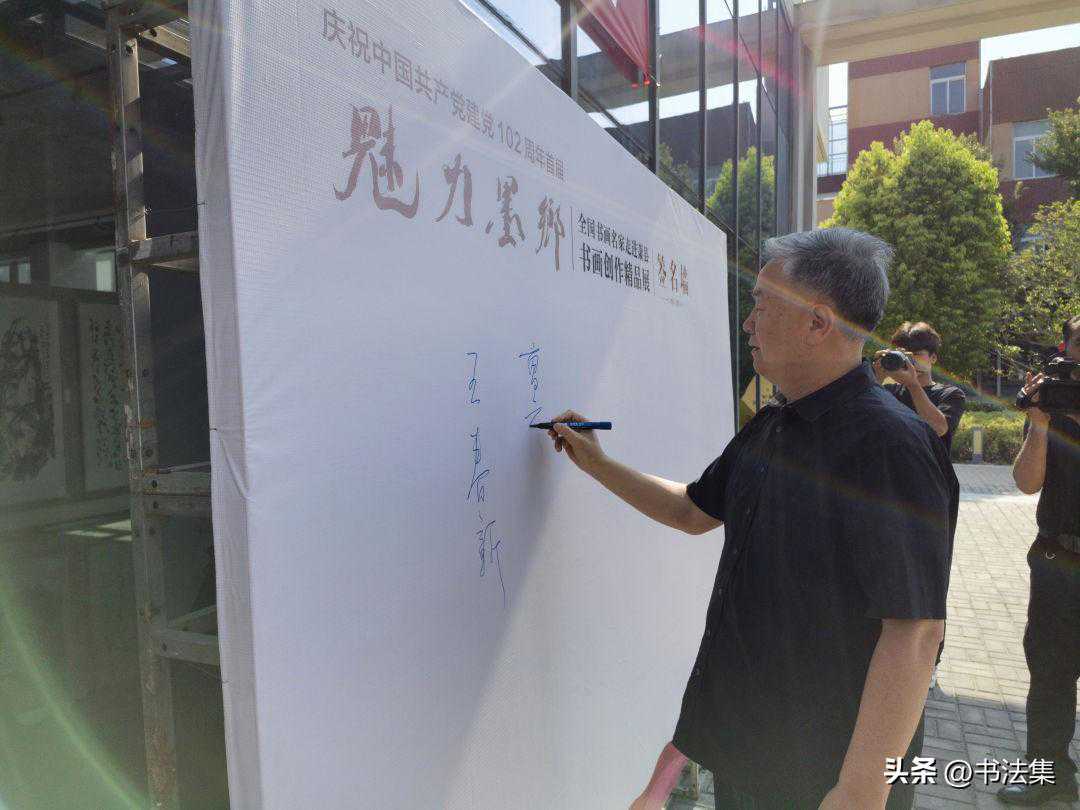 庆祝中国共产党建党102周年首届
魅力墨乡
全国书画名家走进萧县
书画创作精品展
签名墙
王春新
头条 @书法集